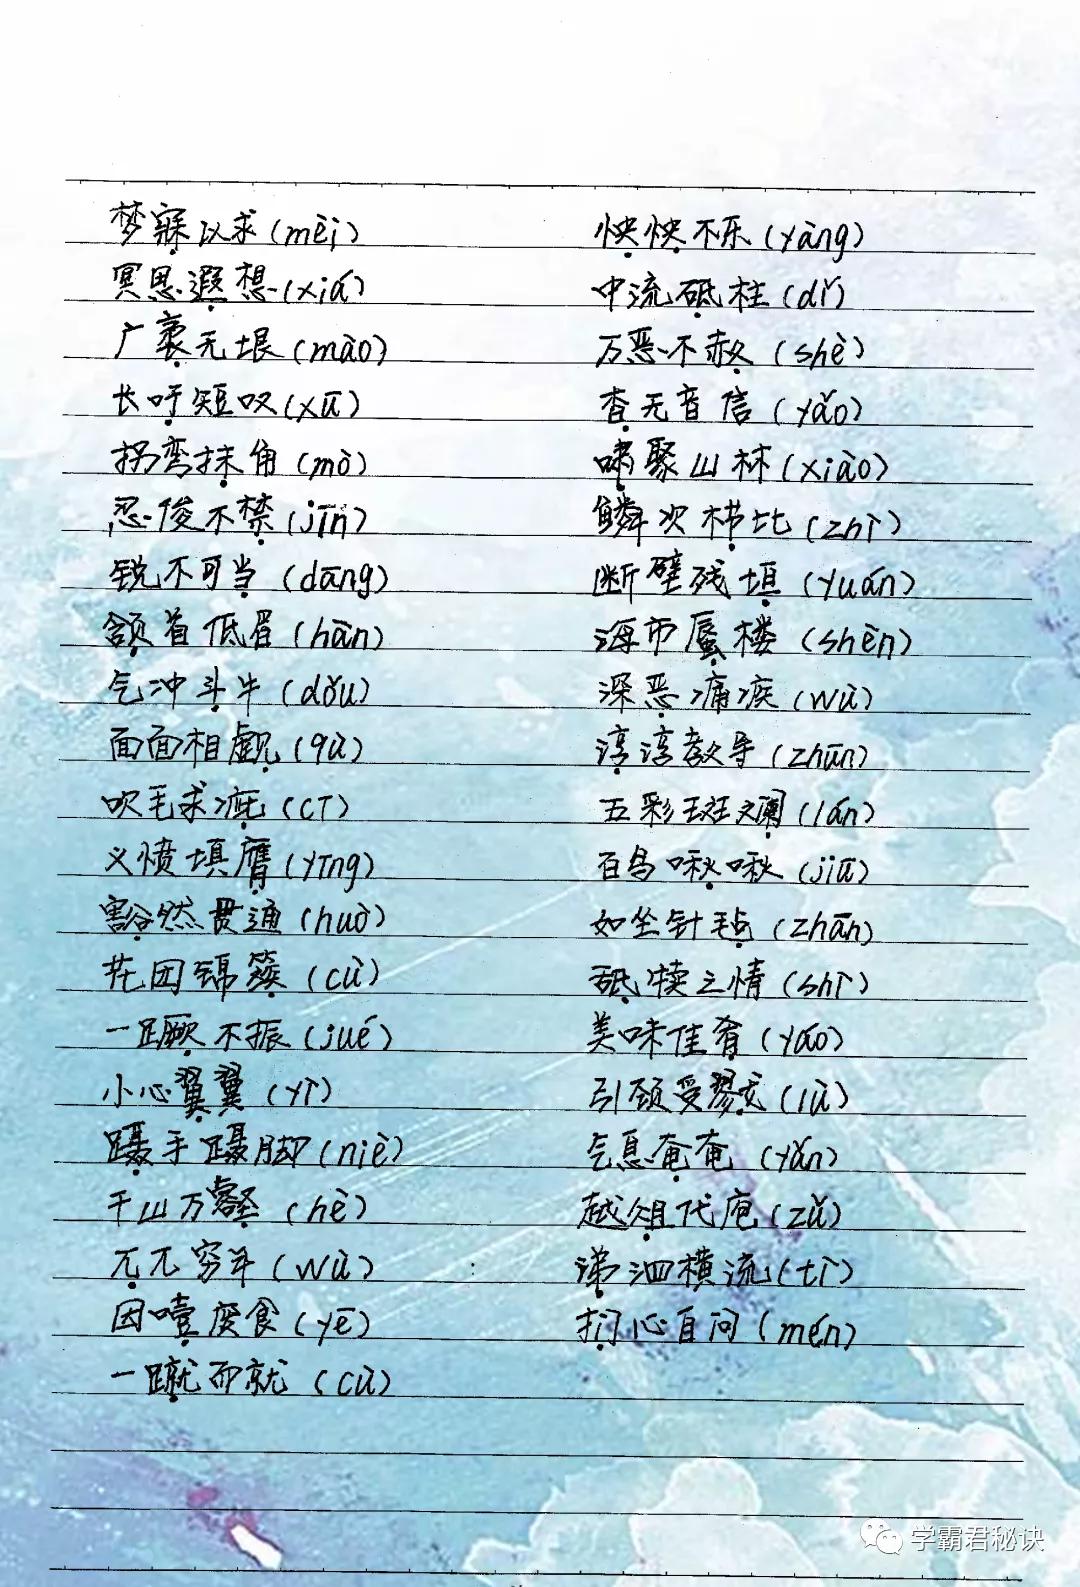 梦寐以求(mèi)
冥思遐想(xiá)
广袤无垠(mào)
长吁短叹(xū)
拐弯抹角(mò)
忍俊不禁(jīn)
锐不可当(dāng)
颔首低眉(hàn)
气冲斗牛(dǒu)
面面相觑(qù)
吹毛求疵(cī)
义愤填膺(yīng)
豁然贯通(huò)
花团锦簇(cù)
一蹶不振(jué)
小心翼翼(yì)
蹑手蹑脚(niè)
千山万壑(hè)
兀兀穷年(wù)
因噎废食(yē)
一蹴而就(cù)
怏怏不乐(yàng)
中流砥柱(dǐ)
万恶不赦(shè)
杳无音信(yǎo)
啸聚山林(xiào)
鳞次栉比(zhì)
断壁残垣(yuán)
海市蜃楼(shèn)
深恶痛疾(wù)
谆谆教导(zhūn)
五彩斑斓(lán)
百鸟啾啾(jiū)
如坐针毡(zhān)
舐犊之情(shì)
美味佳肴(yáo)
引颈受戮(lù)
气息奄奄(yǎn)
越俎代庖(zǔ)
涕泗横流(tì)
扪心自问(mén)
学霸君秘诀